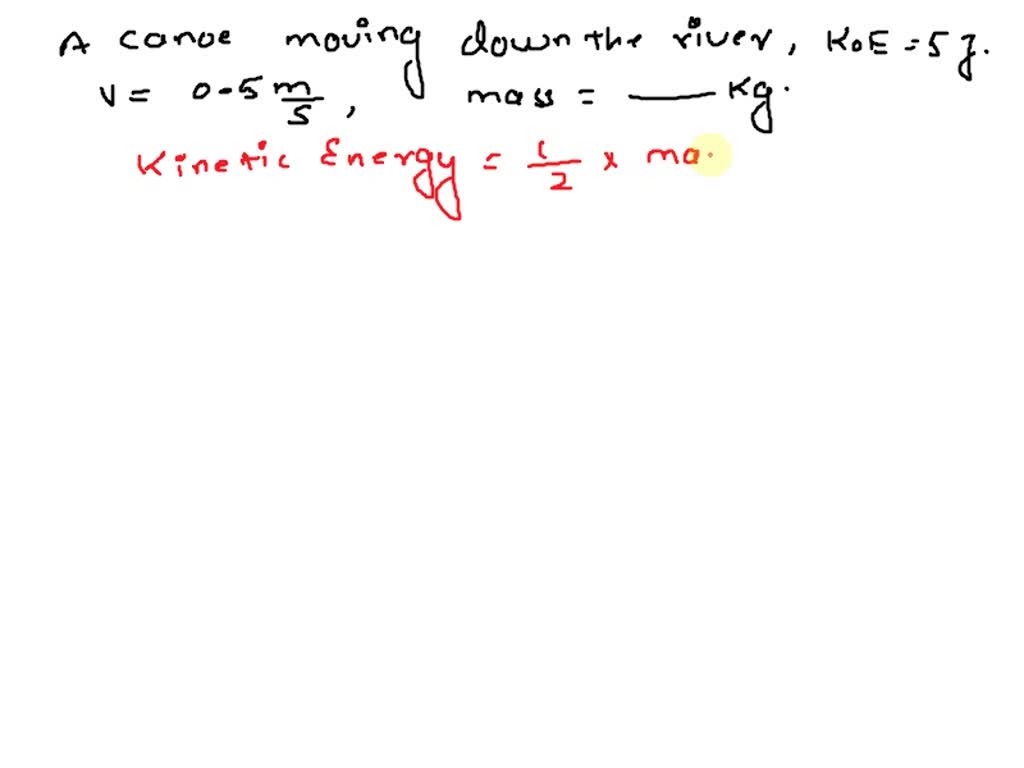 A canoe moving down the river, K.E = 5 J.
V = 0.5 m/s, mass = ___ Kg.
Kinetic Energy = 1/2 x ma